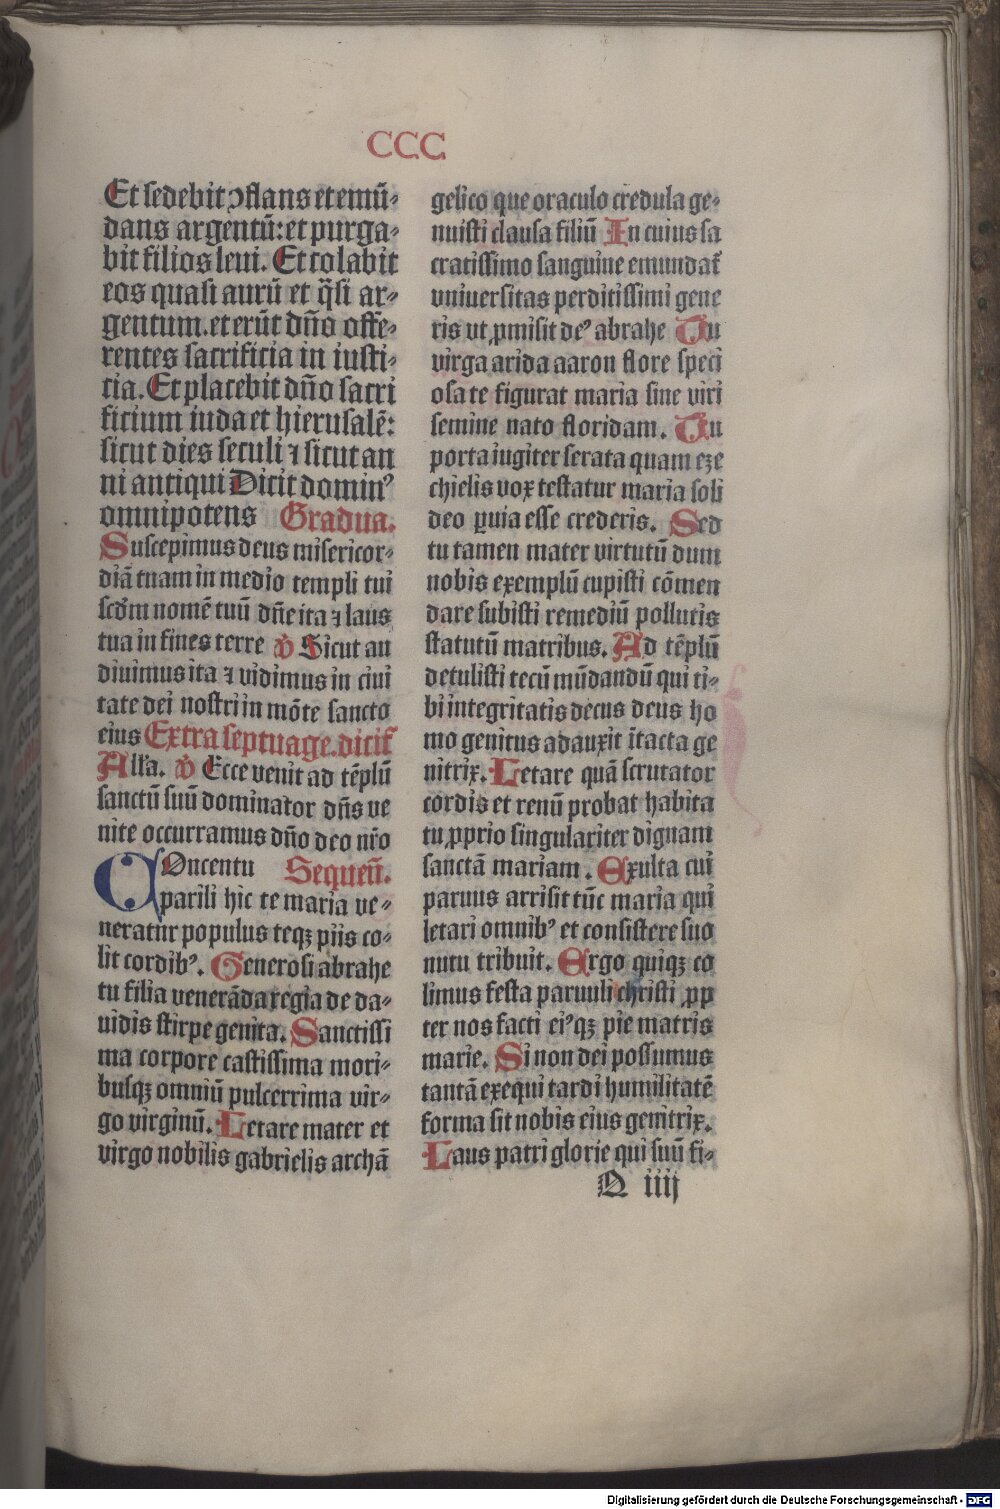 CCC
Et sedebit ꝯflans et emū⸗
dans argentū: et purga⸗
bit filios leui. Et colabit
eos quasi aurū et q̄si ar⸗
gentum. et erūt dn̄o offe⸗
rentes sacrificia in iusti⸗
cia. Et placebit dn̄o sacri
ficium iuda et hierusalē:
sicut dies seculi ⁊ sicut an
ni antiqui Dicit dominꝰ
omnipotens Gradua.
Suscepimus deus misericor⸗
diā tuam in medio templi tui
scd̄m nomē tuū dn̄e ita ⁊ laus
tua in fines terre ℣ Sicut au
diuimus ita ⁊ vidimus in ciui
tate dei nostri in mōte sancto
eius Extra septuage. dicit᷑
Alla. ℣ Ecce venit ad tēplū
sanctū suū dominator dn̄s ve
nite occurramus dn̄o deo nr̄o
COncentu Sequen̄.
parili hic te maria ve⸗
neratur populus teqꝫ piis co⸗
lit cordibꝰ. Generosi abrahe
tu filia venerāda regia de da⸗
uidis stirpe genita. Sanctissi
ma corpore castissima mori⸗
busqꝫ omniū pulcerrima vir⸗
go virginū. Letare mater et
virgo nobilis gabrielis archā
gelico que oraculo credula ge⸗
nuisti clausa filiū In cuius sa
cratissimo sanguine emundat᷑
vniuersitas perditissimi gene
ris vt ꝓmisit deꝰ abrahe Tu
virga arida aaron flore speci
osa te figurat maria sine viri
semine nato floridam. Tu
porta iugiter serata quam eze
chielis vox testatur maria soli
deo ꝑuia esse crederis. Sed
tu tamen mater virtutū dum
nobis exemplū cupisti cōmen
dare subisti remediū pollutis
statutū matribus. Ad tēplū
detulisti tecū mūdandū qui ti⸗
bi integritatis decus deus ho
mo genitus adauxit ītacta ge
nitrix. Letare quā scrutator
cordis et renū probat habita
tu ꝓprio singulariter dignam
sanctā mariam. Exulta cui
paruus arrisit tūc maria qui
letari omnibꝰ et consistere suo
nutu tribuit. Ergo quiqꝫ co
limus festa paruuli christi ꝓp
ter nos facti eiꝰqꝫ pie matris
marie. Si non dei possumus
tantā exequi tardi humilitatē
forma sit nobis eius genitrix.
Laus patri glorie qui suū fi⸗
Q iiij
Digitalisierung gefördert durch die Deutsche Forschungsgemeinschaft - DFG